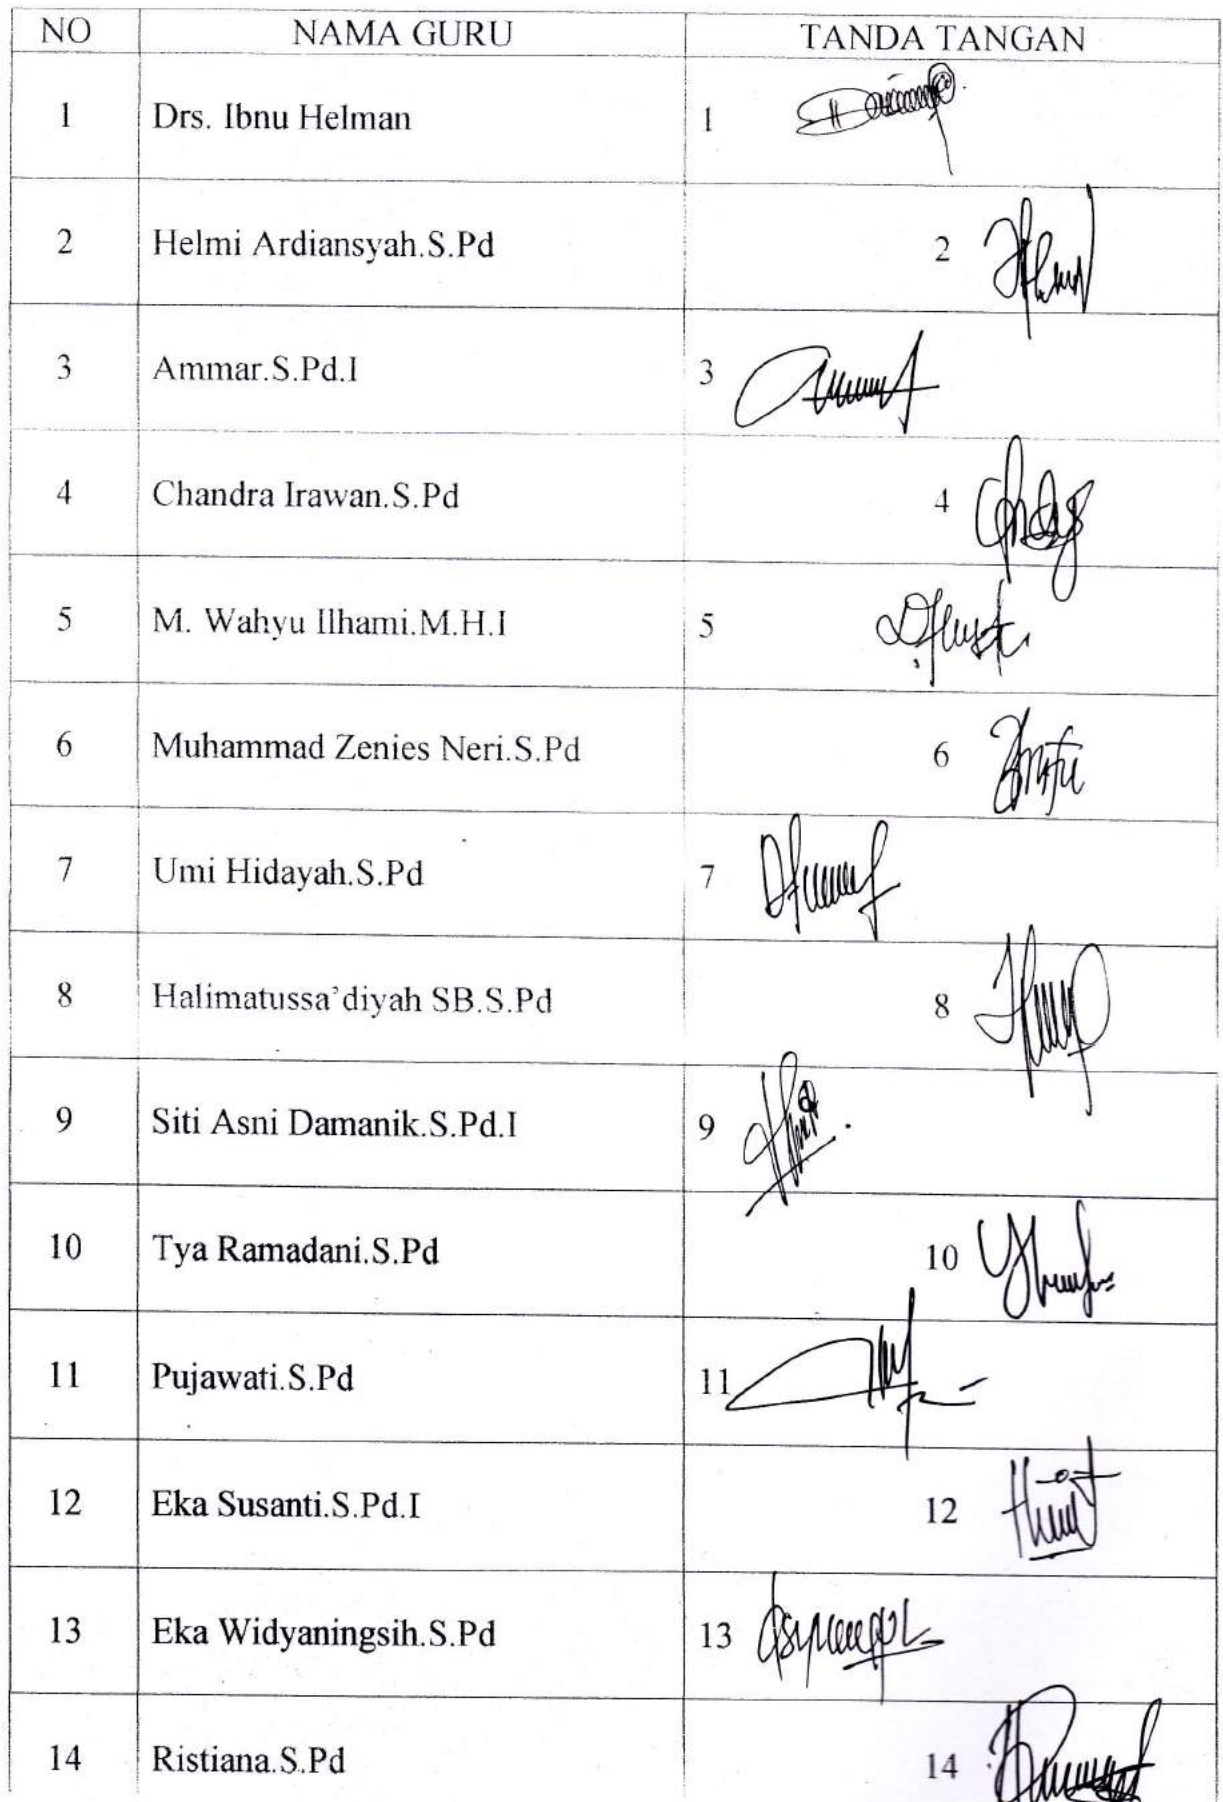 NO NAMA GURU TANDA TANGAN
1 Drs. Ibnu Helman 1
2 Helmi Ardiansyah.S.Pd 2
3 Ammar.S.Pd.I 3
4 Chandra Irawan.S.Pd 4
5 M. Wahyu Ilhami.M.H.I 5
6 Muhammad Zenies Neri.S.Pd 6
7 Umi Hidayah.S.Pd 7
8 Halimatussa’diyah SB.S.Pd 8
9 Siti Asni Damanik.S.Pd.I 9
10 Tya Ramadani.S.Pd 10
11 Pujawati.S.Pd 11
12 Eka Susanti.S.Pd.I 12
13 Eka Widyaningsih.S.Pd 13
14 Ristiana.S.Pd 14